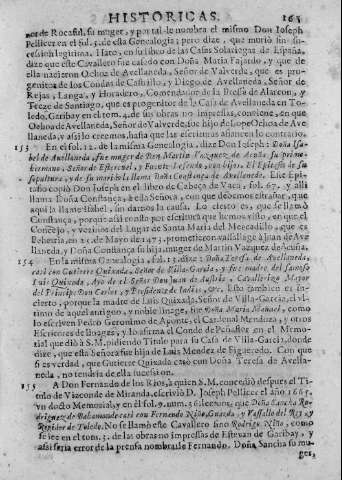 HISTORICAS. 163
nor de Rocaful, su muger, y por tal le nombra el mismo Don Joseph
Pellicer en el fol. 5. de esta Genealogia; pero dize, que murió sin su-
cession legitima. Haro, en su libro de las Casas Solariegas de España,
dize que este Cavallero fue casado con Doña Maria Faxardo, y que de
ella nacieron Ochoa de Avellaneda, Señor de Valverde, que es pro-
genitor de los Condes de Castrillo, y Diego de Avellaneda, Señor de
Rejas, Langa, y Comendador de la Pressa de Alarcon, y
Treze de Santiago, que es progenitor de la Casa de Avellaneda en To-
ledo, Garibay en el tom. de las obras no impressas, conviene, en que
Ochoa de Avellaneda, Señor de Valverde, fue hijo de Lope Ochoa de Ave-
llaneda, y assi lo creemos, hasta que las escrituras afiancen lo contrario.
153 En el fol. 12. de la misma Genealogia, dize Don Joseph: Doña Isa-
bel de Avellaneda, fue muger de Don Martin Vazquez de Acuña su primo
hermano, Señor de Estremal, y
sepultura, y de su marido la llama Doña Constança de Avellaneda. Este Epi-
tafio copió Don Joseph en el libro de Cabeza de Vaca, fol. 67. y alli
llama Doña Constança, à esta Señora, con que devemos estrañar, que
aqui la llame Isabel, sin darnos la causa. Lo cierto es, que se llamó
Constança, porque assi consta por escritura que hemos visto, en que el
Concejo, y vezinos del Lugar de Santa Maria del Mercadillo, que es
Behetria, en 25. de Mayo de 1473. prometieron vasallage à Juan de Ave-
llaneda, y Doña Constança su hija, muger de Martin Vazquez de Acuña.
154 En la misma Genealogia, fol. 13. dize: Doña Teresa de Avellaneda,
casó con Gutierre Quixada, Señor de Villa-Garcia, y fue madre del famoso
Luis Quixada, Ayo de el Señor Don Juan de Austria, Cavallerizo Mayor
del Principe Don Carlos, y Presidente de Indias, &c. Esto tambien es in-
cierto, porque la madre de Luis Quixada, Señor de Villa-Garcia, el vl-
timo de aquel antiguo, y noble linage, fue Doña Maria Manuel, como
lo escriven Pedro Geronimo de Aponte, el Cardenal Mendoza, y otros
Escritores de linages, y lo afirma el Conde de Peñaflor en el Memo-
rial que dió à S. M. pidiendo Titulo para su Casa de Villa-Garcia, donde
dize, que esta Señora fue hija de Luis Mendez de Figueredo. Con que
si es verdad, que Gutierre Quixada casó con Doña Teresa de Avella-
neda, no tendria de ella sucession.
155 A Don Fernando de los Rios, à quien S. M. concedió despues el Ti-
tulo de Vizconde de Miranda, escrivió D. Joseph Pellicer el año 1665.
vn docto Memorial, y en el fol. 9. num. 36. leemos, que Doña Sancha Ro-
driguez de Bahamonde casó con Fernando Niño, Guarda, y Vassallo del Rey, y
Regidor de Toledo. No se llamò este Cavallero sino Rodrigo Niño, como
se lee en el tom. 3. de las obras no impressas de Estevan de Garibay, y
assi seria error de la prensa nombrarle Fernando. Doña Sancha su mu-
ger,